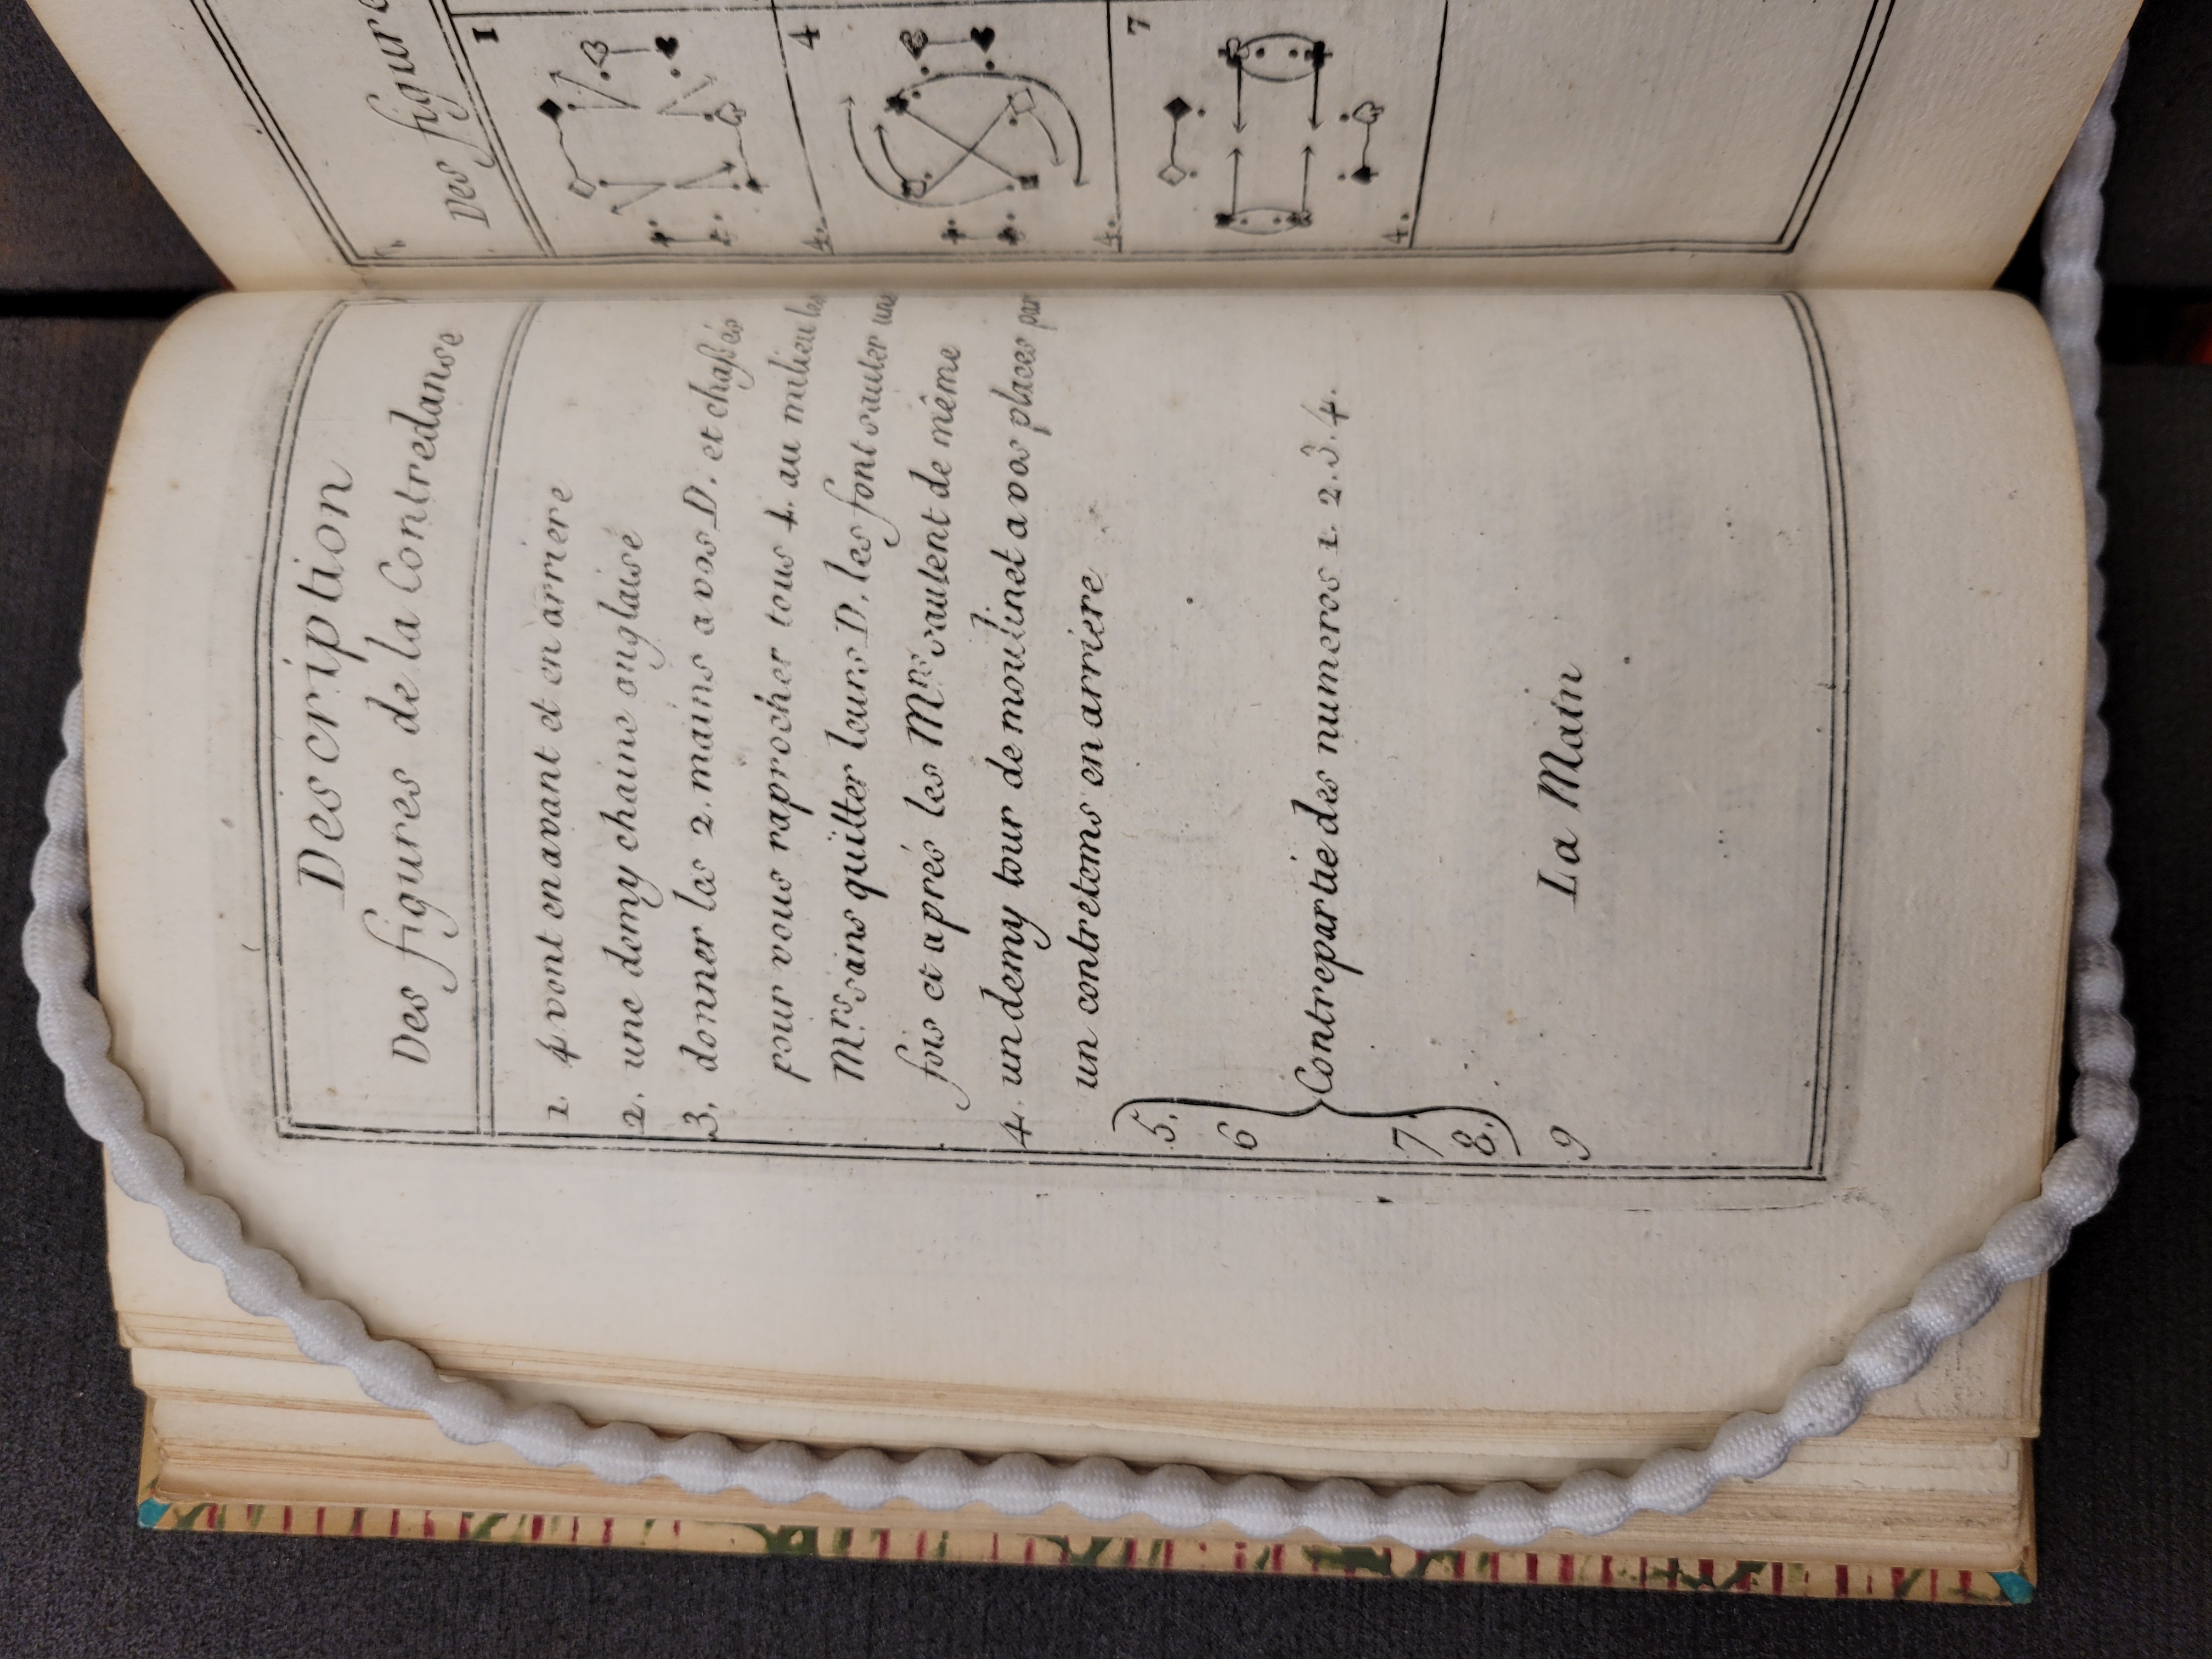 Description
Des figures de la Contredanse
1. 4 vont en avant et en arriere
2. une demy chaine anglaise
3. donner les 2. mains a vos D. et chassés
pour vous raprocher tous 4. au milieu les
Mrs. sans quitter leurs D. les font sauter une
fois et aprés les Mrs. sautent de même
4. un demy tour de moulinet a vos places par
un contretems en arriere
5.
6
Contrepartie des numeros 1. 2. 3. 4.
7
8.
9 La Main
Des figure
1
4.
4
4.
7
4.